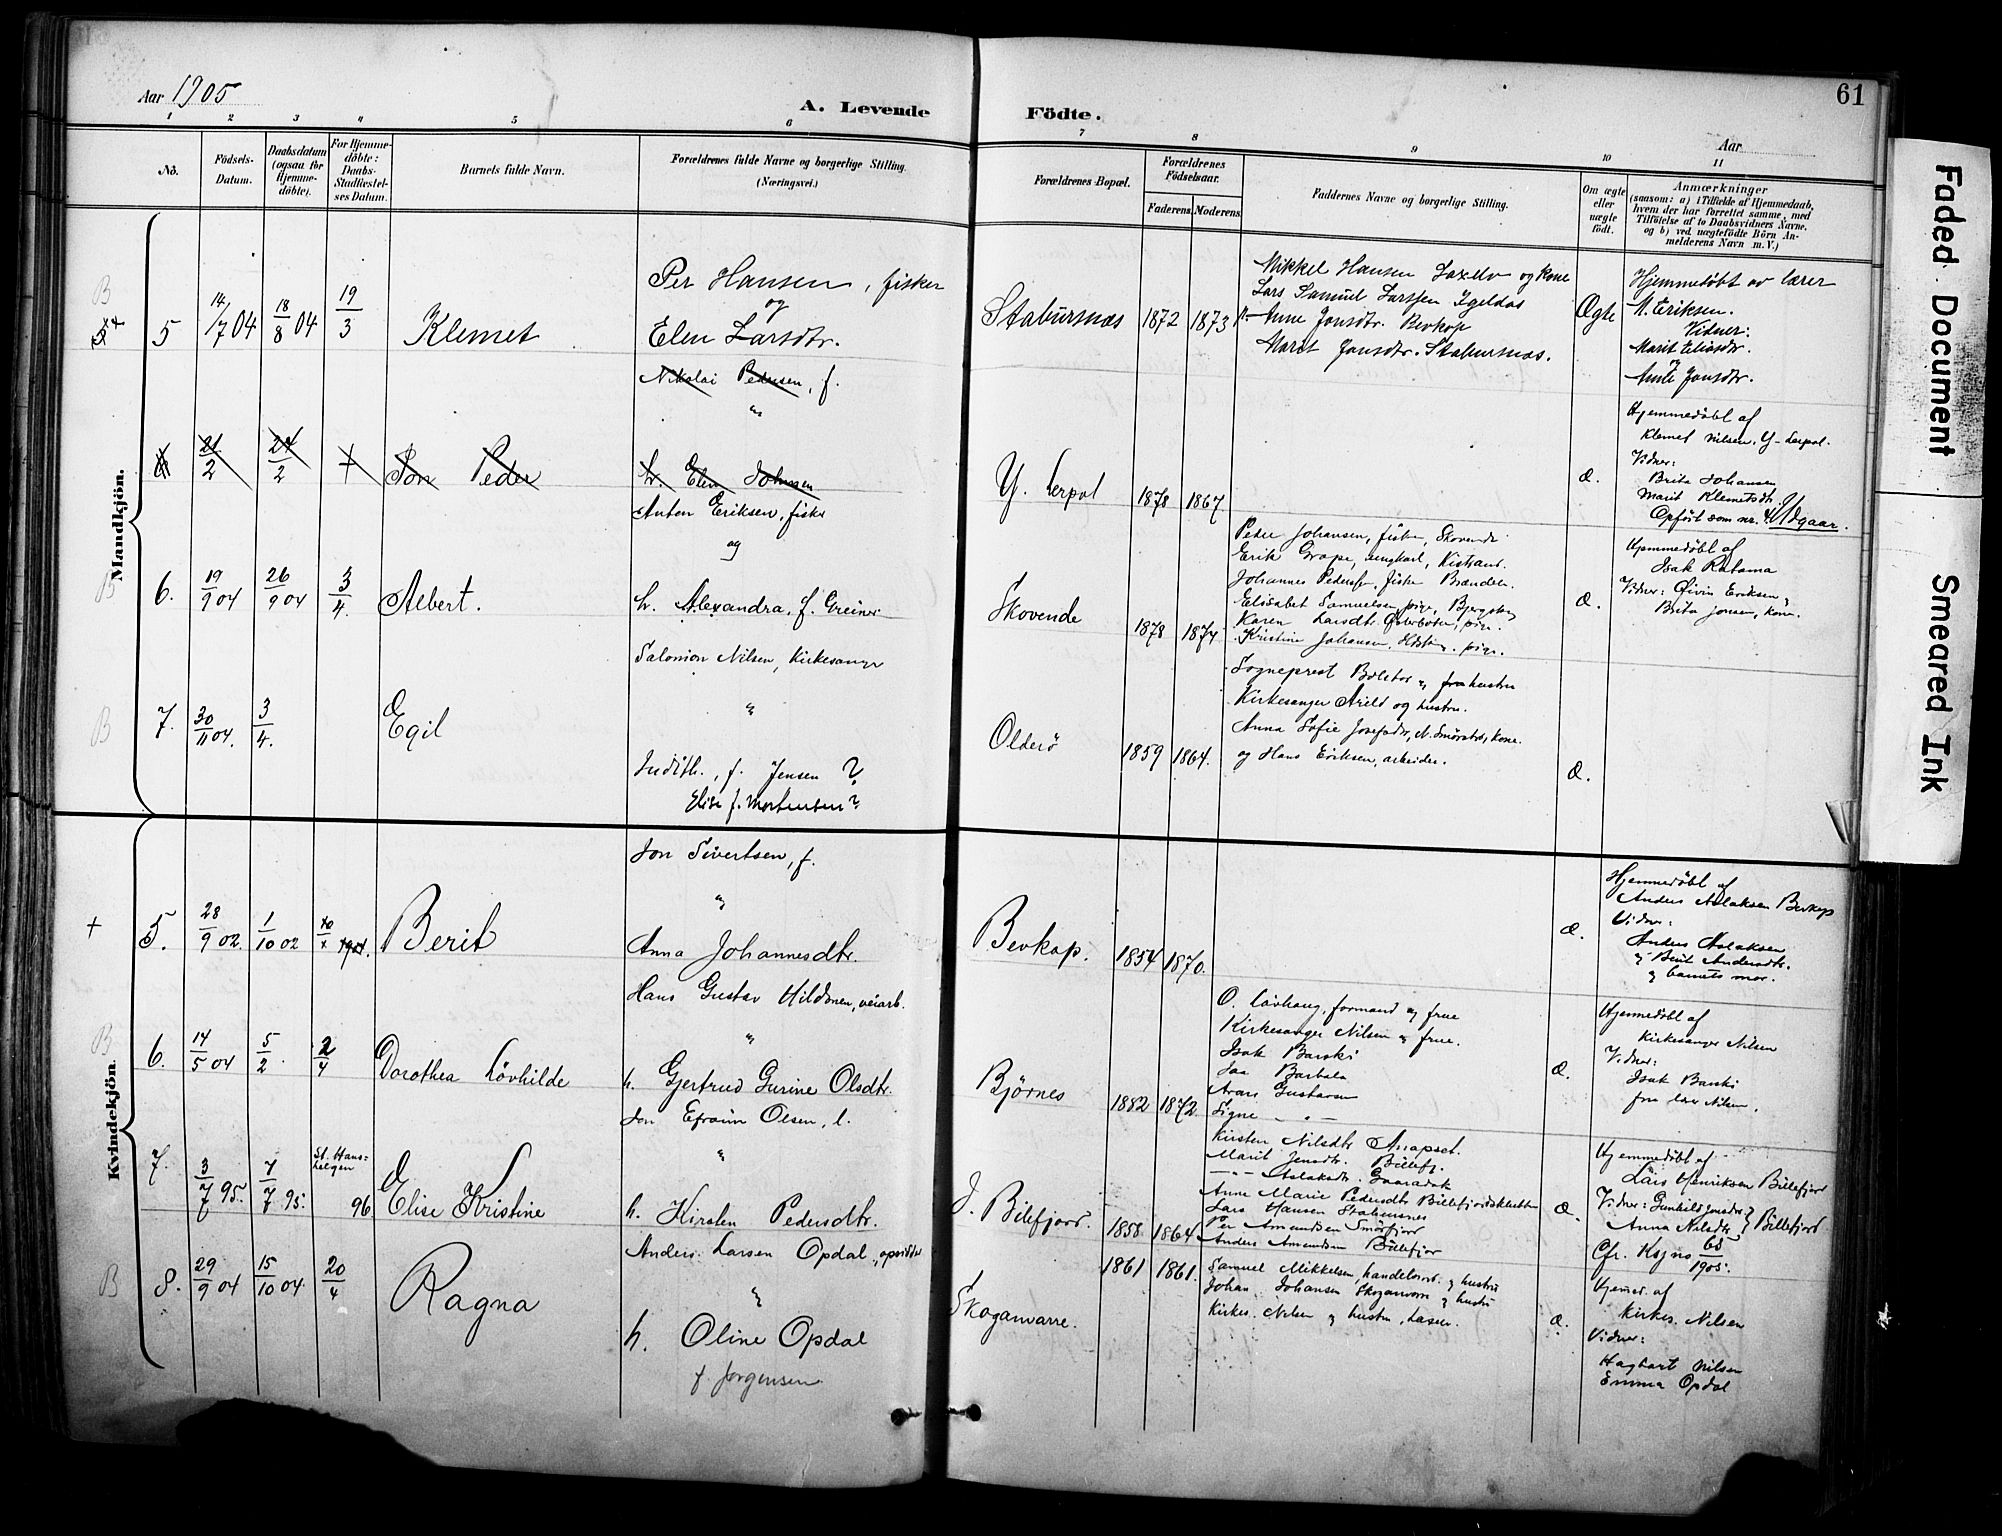 Aar 1905
A. Levende Födte.
61
Aar
1 2 3 4 5 6 7 8 9 10 11
No.
Födsels-Datum.
Daabsdatum (ogsaa for Hjemme-döbte).
For Hjemme-döbte: Daabs-Stadfæstel-ses Datum.
Barnets fulde Navn.
Forældrenes fulde Navne og borgerlige Stilling. (Næringsvei.)
Forældrenes Bopæl.
Forældrenes Födselsaar.
Faderens. Moderens.
Faddernes Navne og borgerlige Stilling.
Om ægte eller uægte födt.
Anmærkninger
(saasom: a) i Tilfælde af Hjemmedaab, hvem der har forrettet samme, med Tilföielse af to Daabsvidners Navne. og b) ved uægtefödte Börn An-melderens Navn m. V.)
Mandkjön.
B
5
14/7 04
18/8 04
19/3
Klemet
Per Hansen, fisker
og
Elen Larsdtr.
Stabursnæs
1872
1873
Mikkel Hansen Laxelv og kone
Lars Samuel Larssen Igeldas
Anne Jonsdtr. Bevkop
Marit Jonsdtr. Stabursnæs.
Ægte
Hjemmedøbt av lærer
M. Eriksen.
Vidner:
Marit Eliasdtr.
og
Anne Jonsdtr.
6
21/2
24/2
+
Jon Peder
Nikolai Pedersen, f.
"
h. Elen Johnsen
Y. Lerpol
1878
1867
æ.
Hjemmedøbt af
Klemet Nilsen, Y-Lerpol.
Vidner:
Brita Johansen
Marit Klemetsdtr.
Opført som nr. 4. Udgaar.
B
6.
19/9 04
26/9 04
3/4.
Albert.
Anton Eriksen, fisker
og
h. Alexandra, f. Greiner
Skovende
1878
1874
Peder Johansen, fisker, Skovende
Erik Grape, ungkarl, Kistrand.
Johannes Pedersen, fisker Brændelv.
Elisabet Samuelsen, pige, Bjergeby
Karen Larsdtr. Østerbotn, pige.
Kristine Johansen, pige.
æ.
Hjemmedøbt af
Isak Ratama
Vidner: Øivin Eriksen &
Brita Jonsen, kone.
B
7.
30/11 04.
3/4.
Egil
Salomon Nilsen, Kirkesanger
"
Judith, f. Jensen ?
Elise f. Mortensen?
Olderø
1859
1864.
Sogneprest Balsto og hustru
Kirkesanger Arild og hustru.
Anna Sofie Josefsdtr, N. Smørstad, kone.
og Hans Eriksen, arbeider.
æ.
Kvindekjön.
+
5.
28/9 02.
1/10 02
Berit
Jon Sivertsen, f.
"
Anna Johannesdtr.
Bevkop.
1854
1870.
æ.
Hjemmedøbt af
Anders Aslaksen Bevkop
Vidner:
Anders Aslaksen
og Berit Andersdtr.
og barnets mor.
B
6.
14/5 04
5/2.
2/4
Dorothea Løvhilde
Hans Gustav Hildonen, veiarb.
"
h. Gjertrud Gurine Olsdtr.
Bjørnes
1882
1872.
O. Løvhaug, formand og frue
Kirkesanger Nilsen og frue.
Isak Barski
Arars Gustavsen
Signe — " —
æ.
Hjemmedøbt af
Kirkesanger Nilsen
Vidner:
Isak Barski
fru lærer Nilsen.
7.
3/7 95.
7/7 95.
St. Hans-helgen 96
Elise Kristine
Jon Efraim Olsen, l.
"
h. Kirsten Pedersdtr.
J. Billefjord.
1858
1864
Kirsten Nilsdtr
Marit Jensdtr. Billefj.
— " — Aslaksdtr.
Anne Marie Pedersdtr Billefjordskletten
Lars Hansen Stabursnes
Per Amundsen Smørfjord
Anders Amundsen Billefjor
æ
Hjemmedøbt af
Lars Henriksen Billefjord
Vidner: Gunhild Jonsdtr }
Anna Nilsdtr } Billefjord
Cfr. Ksgns 65/1905.
B
8.
29/9 04
15/10 04.
20/4
Ragna
Anders Larsen Opdal, opsidder
"
h. Oline Opdal
f. Jørgensen.
Skoganvarre.
1861
1861.
Samuel Mikkelsen, handelsm. og hustru
Johan Johansen Skoganvarre og hustru
Kirkes. Nilsen og hustru, Laxelv.
æ.
Hjemed. af
Kirkes. Nilsen
Vidner:
Hagbart Nilsen
Emma Opdal
Faded Document
Smeared Ink